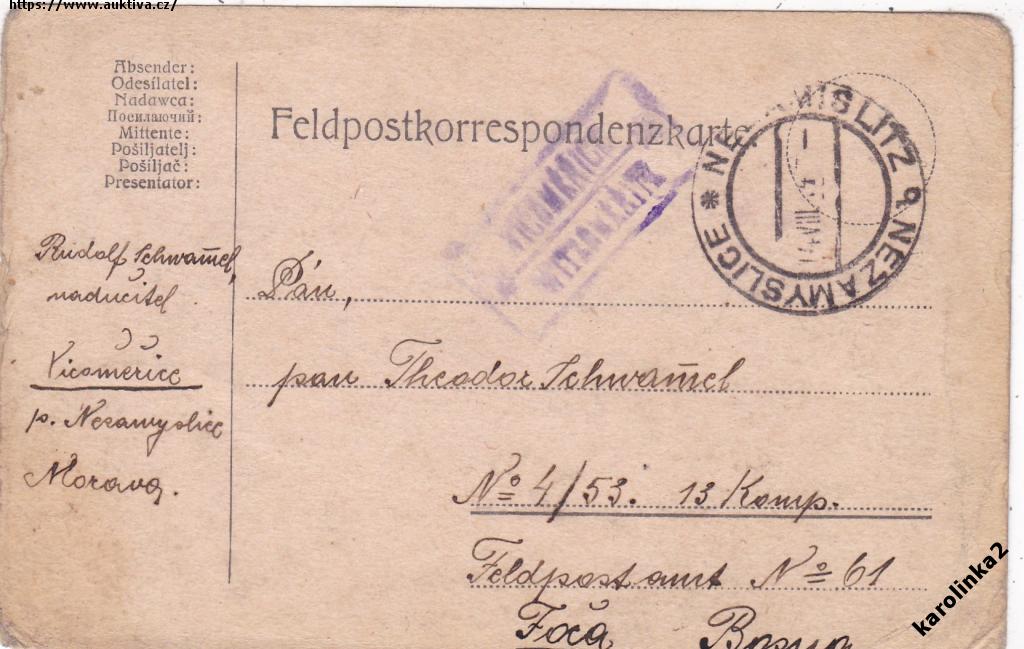 https://www.auktiva.cz/
Absender:
Odesílatel:
Nadawca:
Посилаючий:
Mittente:
Pošiljatelj:
Pošiljač:
Presentator:
Feldpostkorrespondenzkarte.
NEZAMYSLICE
Rudolf Schwam̄el,
nadučitel
Vicoměřice
p. Nezamyslice
Morava.
Pán,
pan Theodor Schwam̄el
No 4/53. 13 Komp.
Feldpostamt No 61
Foča Bosna
karolinka2